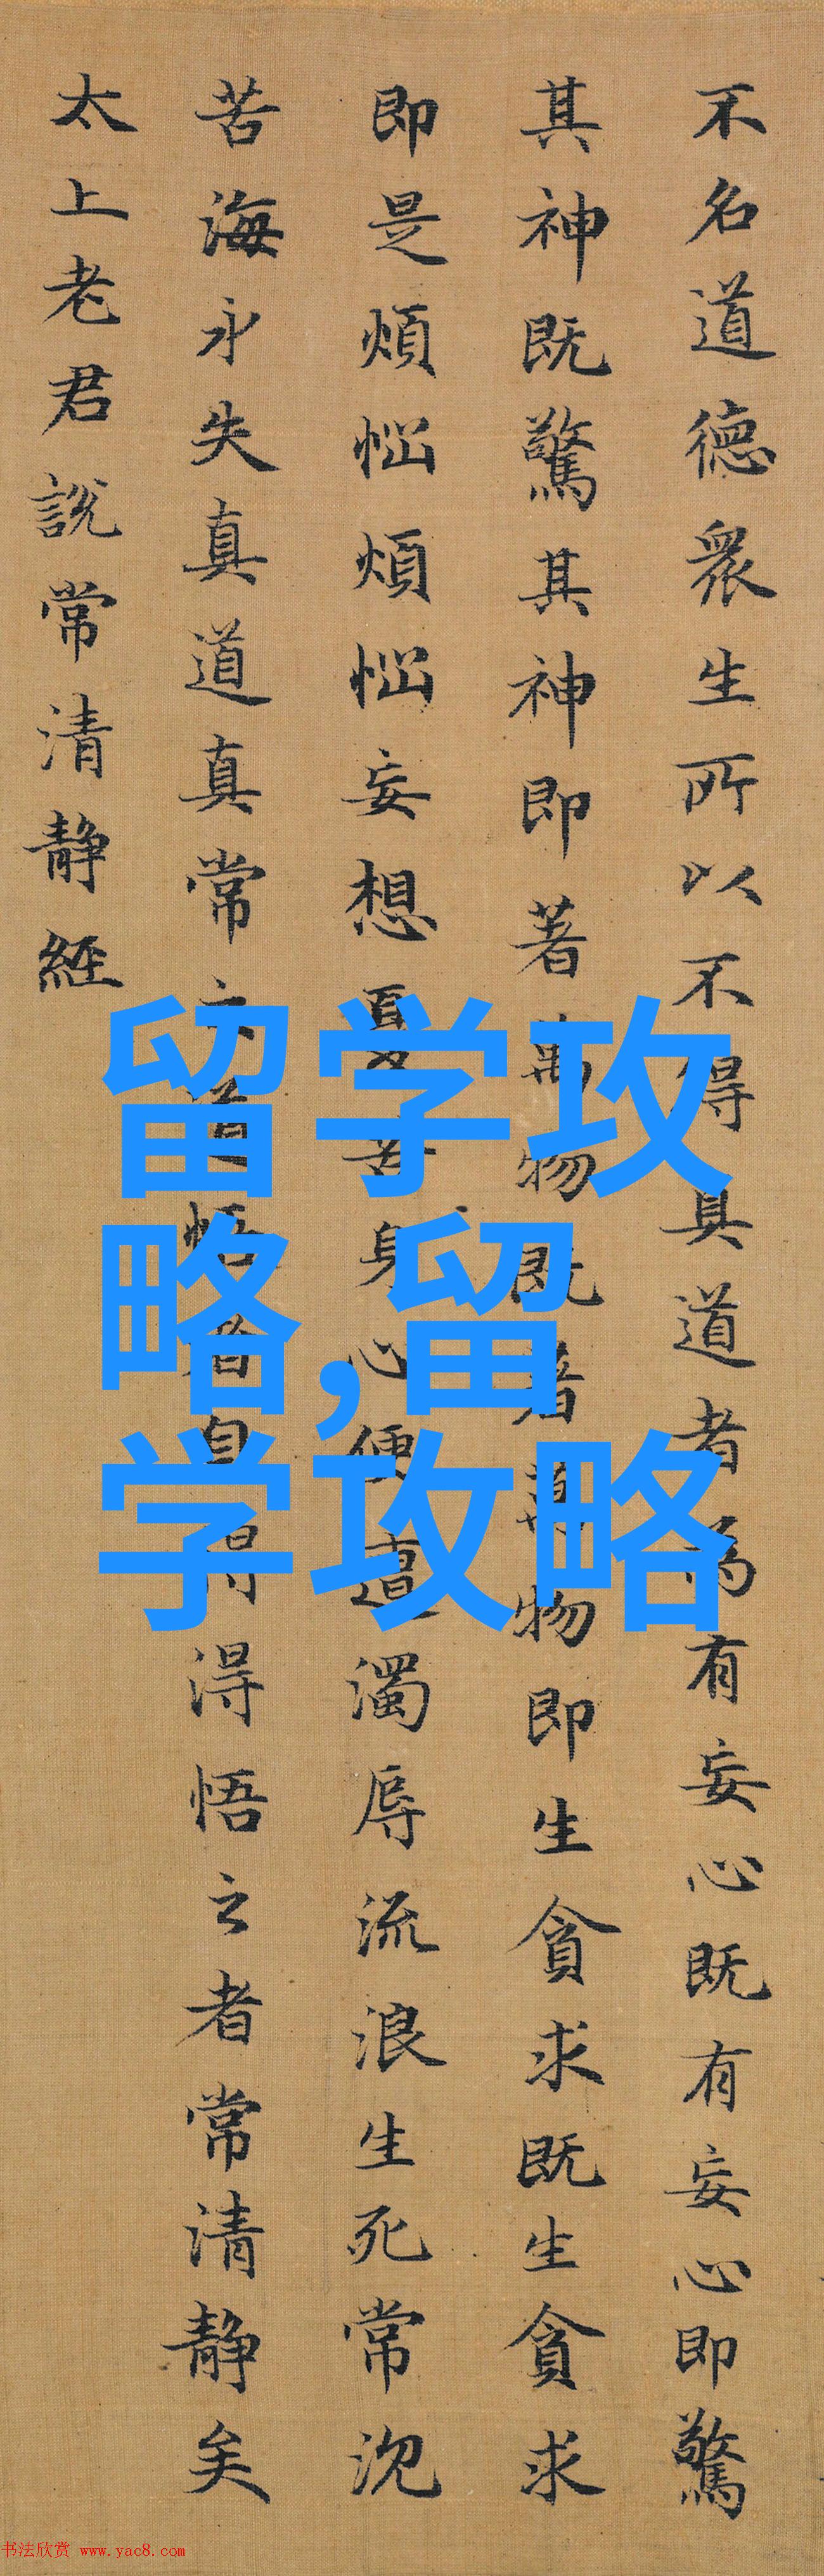 不名道德衆生所以不得真道者為有妄心既有妄心即驚
其神既驚其神即著萬物既著萬物即生貪求既生貪求
即是煩惱煩惱妄想憂苦身心便遭濁辱流浪生死常沉
苦海永失真道真常之道悟者自得得悟之者常清静矣
太上老君說常清静經
留学攻
略,留
学攻略
书法欣赏 www.yac8.com